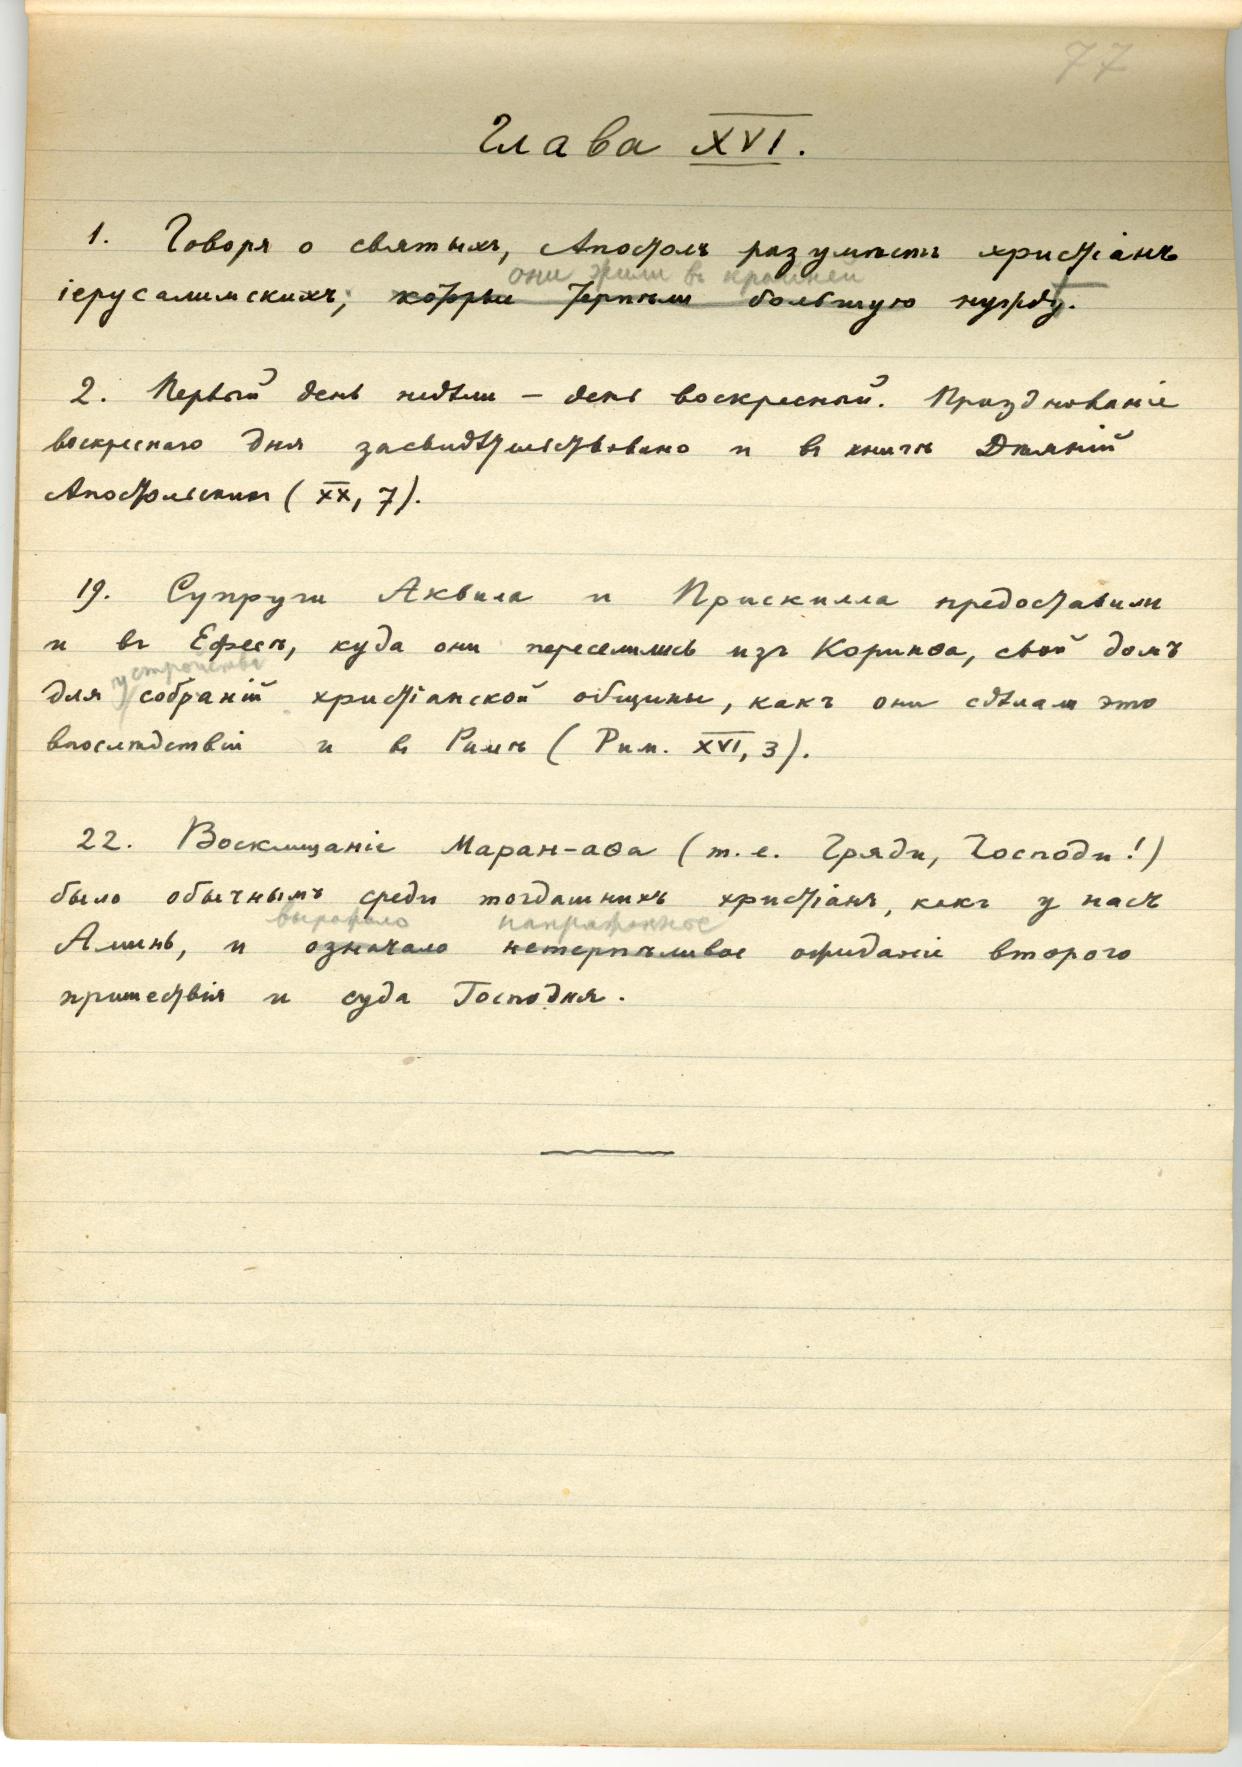 77
Глава XVI.
1. Говоря о святыхъ, Апостолъ разумѣетъ христіанъ
они жили въ крайней
іерусалимскихъ; которые терпѣли большую нужду.
2. Первый день недѣли – день воскресный. Празднованіе
воскреснаго дня засвидѣтельствовано и въ книгѣ Дѣяній
Апостольскихъ (XX, 7).
19. Супруги Аквила и Прискилла предоставили
и въ Ефесѣ, куда они переселились изъ Коринѳа, свой домъ
устройства
для собраній христіанской общины, какъ они сдѣлали это
впослѣдствіи и въ Римѣ (Рим. XVI, 3).
22. Восклицаніе Маран-аѳа (т. е. Гряди, Господи!)
было обычнымъ среди тогдашнихъ христіанъ, какъ у насъ
выражало напряженное
Аминь, и означало нетерпѣливое ожиданіе второго
пришествія и суда Господня.